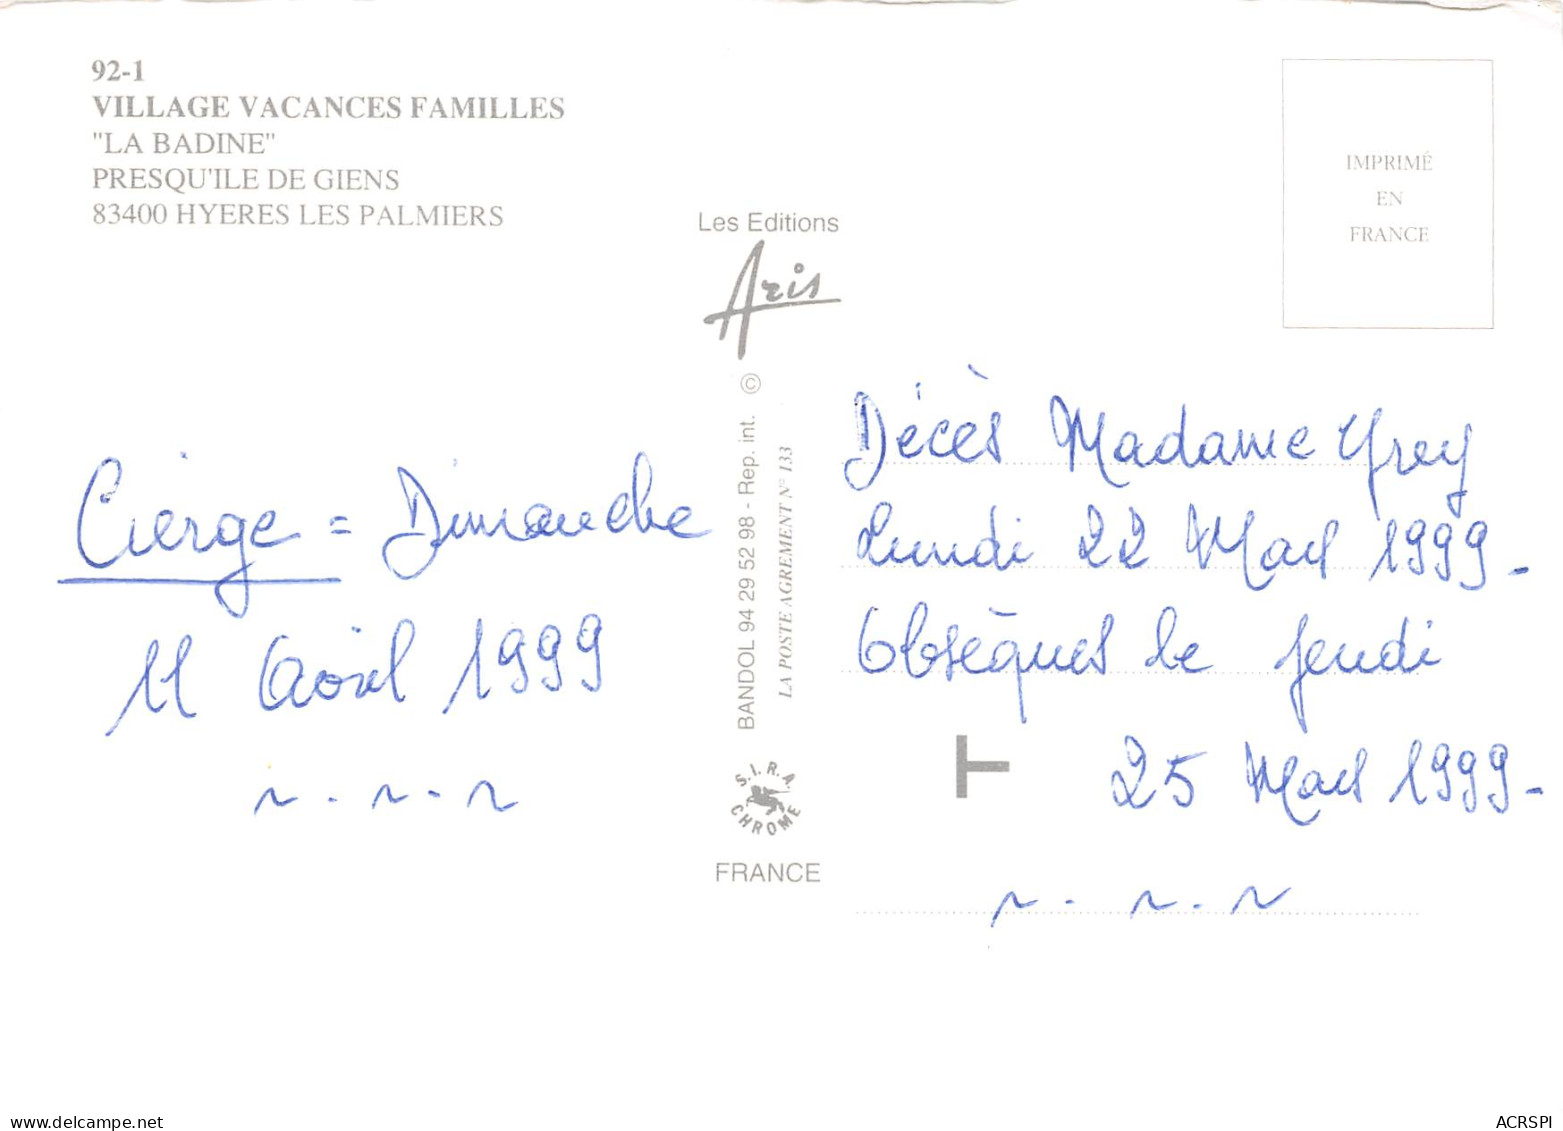 92-1
VILLAGE VACANCES FAMILLES
"LA BADINE"
PRESQU'ILE DE GIENS
83400 HYERES LES PALMIERS
IMPRIMÉ
EN
FRANCE
Les Editions
Aris
BANDOL 94 29 52 98 - Rep. int. ©
LA POSTE AGREMENT N° 133
S.I.R.A.
CHROME
FRANCE
Cierge = Dimanche
11 Avril 1999
Décès Madame
Lundi 22 Mars 1999.
Obsèques le jeudi
25 Mars 1999.
www.delcampe.net
ACRSPI